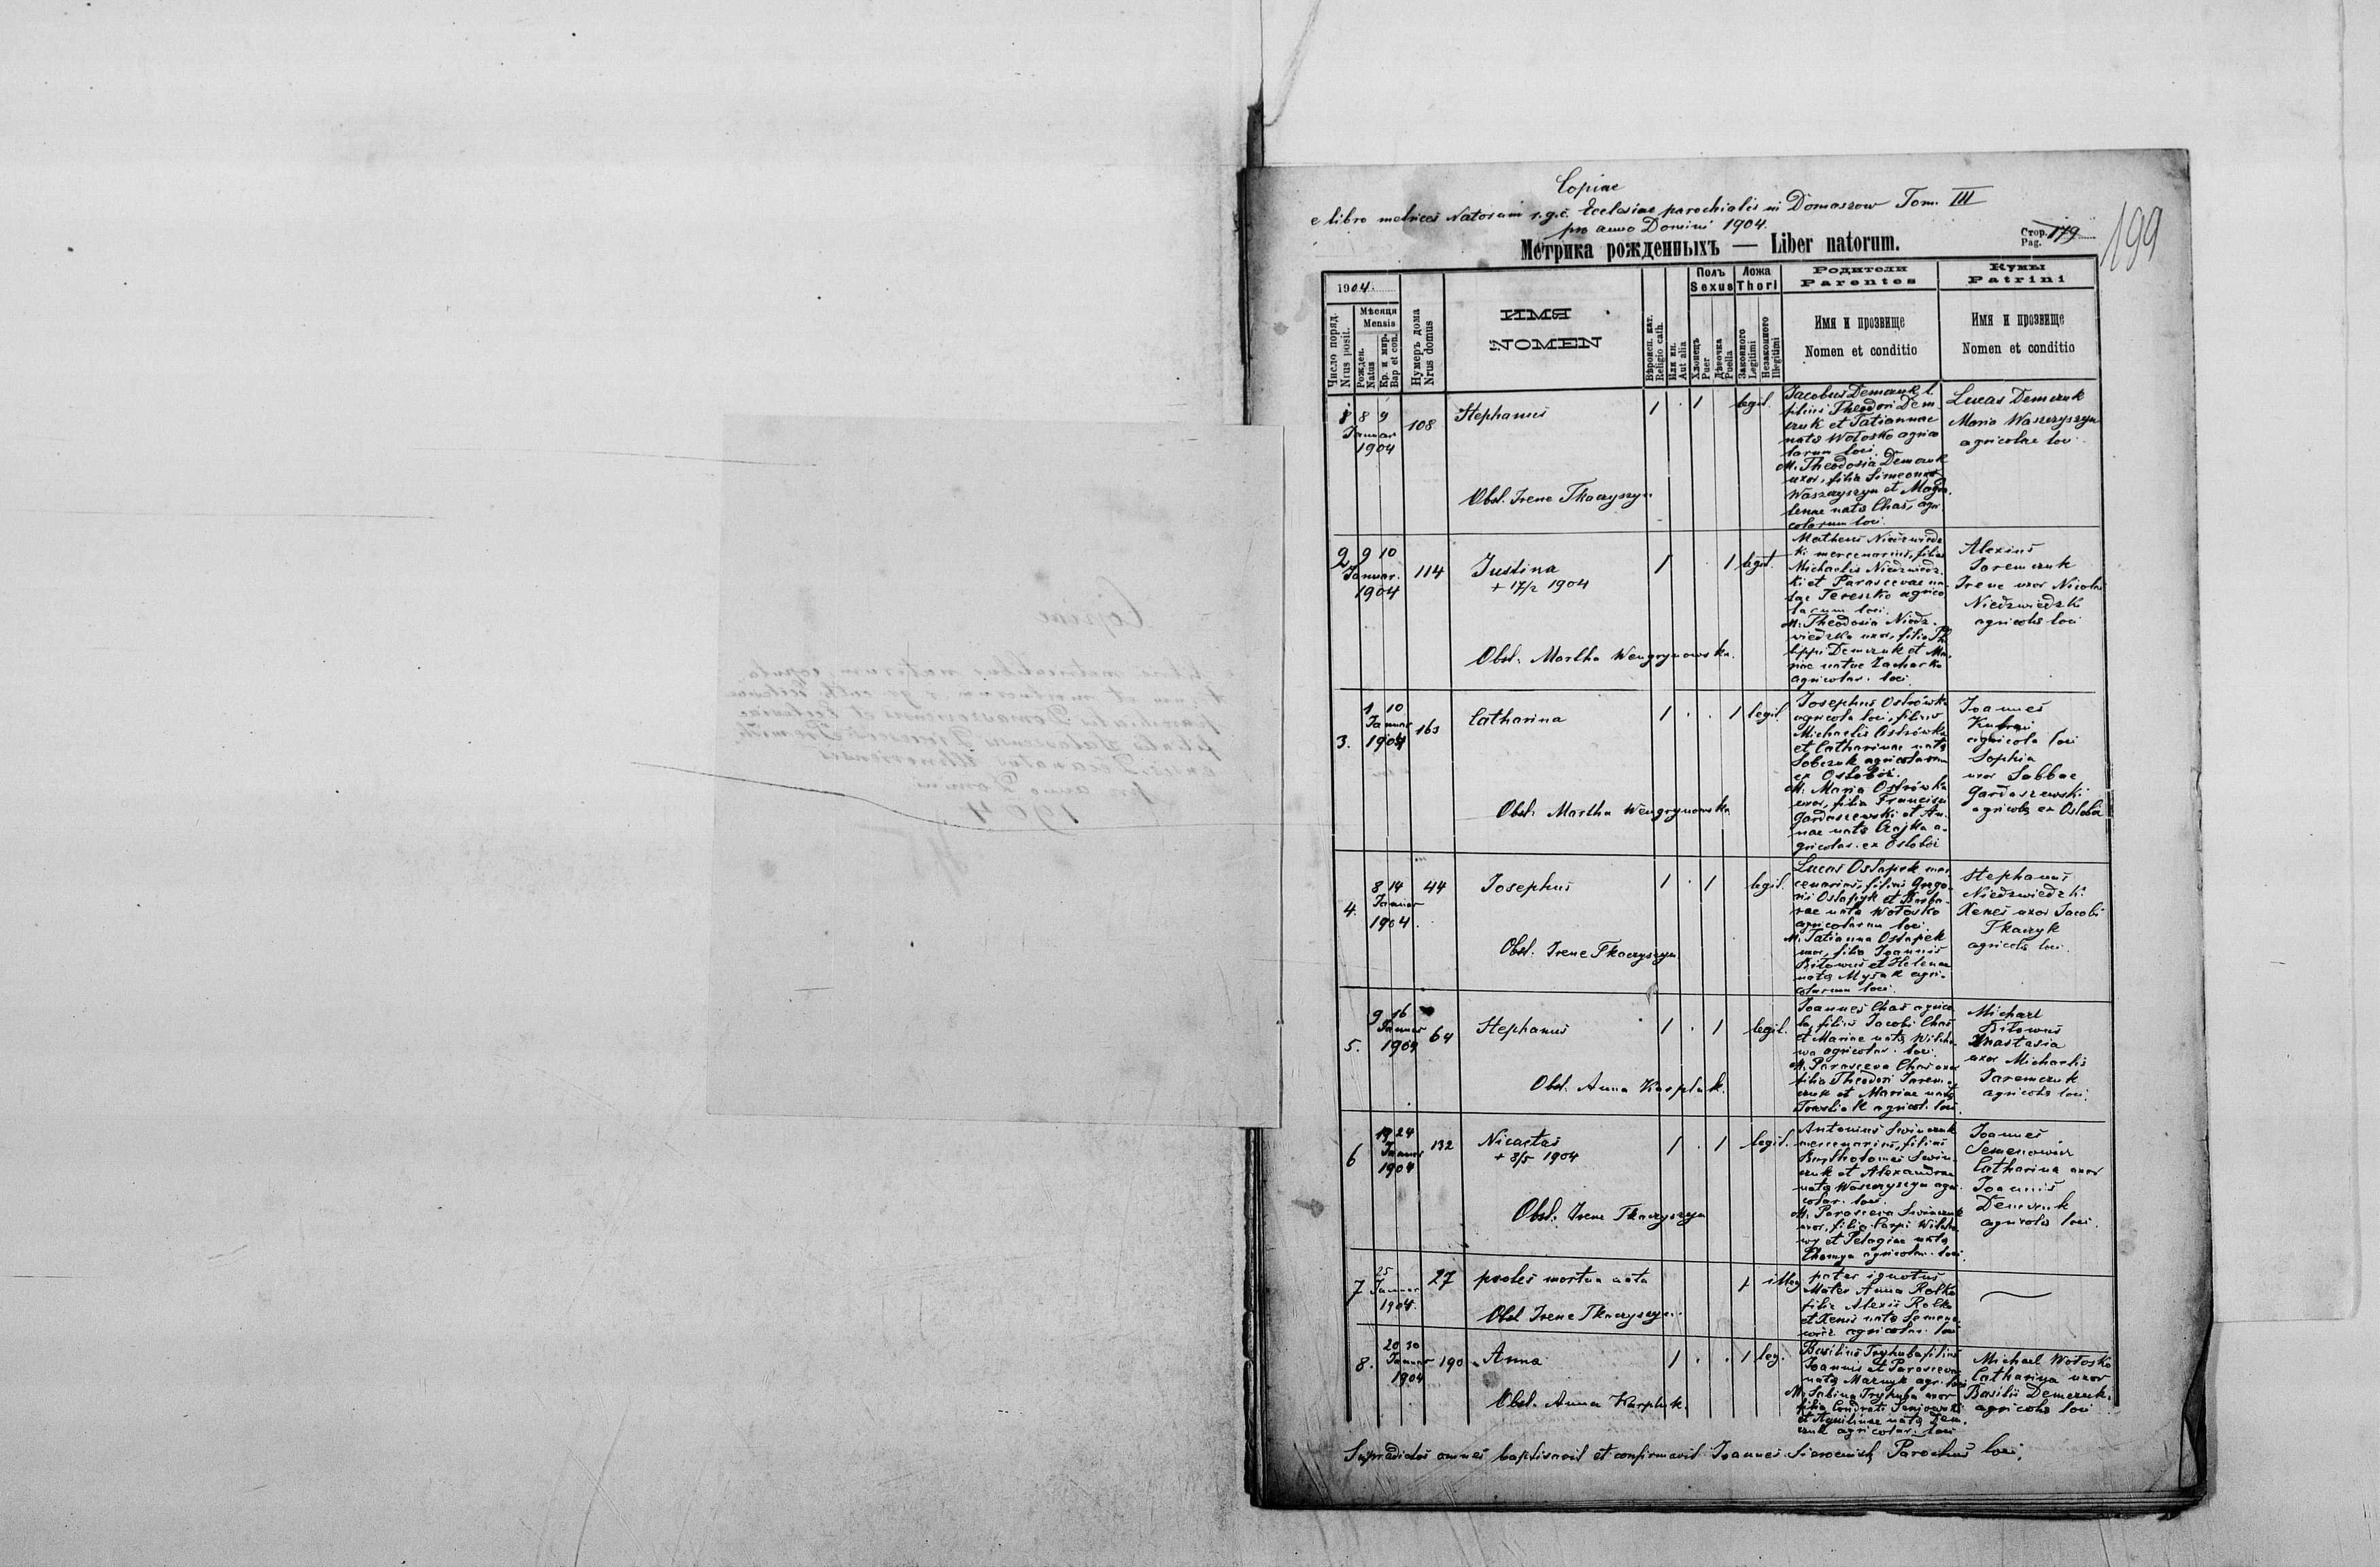 Copiae
e libro metrices Natorum r. g. c. Ecclesiae parochialis in Domaszow Tom. III
pro anno Domini 1904.
Метрика рожденныхъ — Liber natorum.
Стор. Pag. 179
199
1904.
Число поряд. Nrus posit.
Мѣсяця Mensis
Рожден. Natus
Кр. и мир. Bap et con.
Нумеръ дома Nrus domus
ИМЯ
NOMEN
Вѣроисп. кат. Religio cath.
Или ин. Aut alia
Полъ Sexus
Хлопець Puer
Дѣвочка Puella
Ложа Thori
Законного Legitimi
Незаконного Illegitimi
Родители
Parentes
Имя и прозвище
Nomen et conditio
Кумы
Patrini
Имя и прозвище
Nomen et conditio
1 8 9 Januar 1904 108 Stephanus 1 . 1 legit.
Obst. Irene Tkaczyszyn
Jacobus Demczuk
filius Theodori Dem-
czuk et Tatiannae
natae Wołosko agrico
larum loci.
M. Theodosia Demczuk
uxor, filia Simeonis
Waszczyszyn et Magda
lenae natae Chaś, agri-
colarum loci.
Lucas Demczuk
Maria Waszczyszyn
agricolae loci.
2 9 10 Januar. 1904 114 Justina 1 . 1 legit.
+ 17/2 1904
Obst. Martha Wengrynowska.
Matheus Niedzwiedz
ki mercenarius, filius
Michaelis Niedzwiedz
ki et Parascevae na-
tae Tereszko agrico
larum loci.
M. Theodosia Niedz-
wiedzka uxor, filia Phi
lippi Demczuk et Ma-
riae natae Zacharko
agricolar. loci.
Alexius
Jaremczuk
Irene uxor Nicolai
Niedzwiedzki
agricolae loci
3. 1 10 Januar 1904 163 Catharina 1 . . 1 legit.
Obst. Martha Wengrynowska
Josephus Ostrówka
agricola loci, filius
Michaelis Ostrówka
et Catharinae natae
Sobczuk agricolarum
ex Ostobóż.
M. Maria Ostrówka
uxor, filia Francisci
Gardaszewski et An-
nae natae Czajka a-
gricolar. ex Ostobóż
Joannes
agricola loci
Sophia
uxor Sabbae
Gardaszewski
agricolae ex Ostobóż
4. 8 14 Januar 1904 44 Josephus 1 . 1 legit.
Obst. Irene Tkaczyszyn
Lucas Ostapek mer
cenarius, filius Grego-
rii Ostapyk et Barba-
rae natae Wołosko
agricolarum loci.
M. Tatianna Ostapek
uxor, filia Joannis
Biłowus et Helenae
natae Mysak agri-
colarum loci.
Stephanus
Niedzwiedzki
Xenes uxor Jacobi
Tkaczyk
agricolae loci.
5. 9 16 Januar 1904 64 Stephanus 1 . 1 legit.
Obst. Anna Karpluk.
Joannes Chaś agrico
la, filius Jacobi Chaś
et Mariae natae
agricolar. loci.
M. Parasceva Chaś uxor
filia Theodori Jarem
czuk et Mariae natae
agricol. loci.
Michael
Biłowus
Anastasia
uxor Michaelis
Jaremczuk
agricolae loci.
6 19 24 Januar 1904 132 Nicaetas 1 . 1 legit.
+ 8/5 1904
Obst. Irene Tkaczyszyn
Antonius Swinczuk
mercenarius, filius
Bartholomei Swin-
czuk et Alexandrae
natae Waszczyszyn agri
colar. loci.
M. Parasceva Swinczuk
uxor, filia Carpi
et Pelagiae natae
agricolar. loci.
Joannes
Semenowicz
Catharina uxor
Joannis
Demczuk
agricolae loci.
7 25 Januar 1904. 27 proles mortua nata 1 illeg.
Obst. Irene Tkaczyszyn.
pater ignotus
Mater Anna Rolka
filia Alexii Rolka
et Xenes natae Semeno
wicz agricolar. loci
8. 20 30 Januar 1904 190 Anna 1 . . 1 leg.
Obst. Anna Karpluk.
Basilius Tryhuba filius
Joannis et Parascevae
natae Mazuyk agr. loci
M. Sabina Tryhuba uxor
filia Condrati
et Aquilinae natae Dem-
czuk agricolar. loci
Michael Wołosko
Catharina uxor
Basilii Demczuk.
agricolae loci
Supradictos omnes baptisavit et confirmavit Joannes Sierociński Parochus loci.
Copiae
pro anno Domini
1904